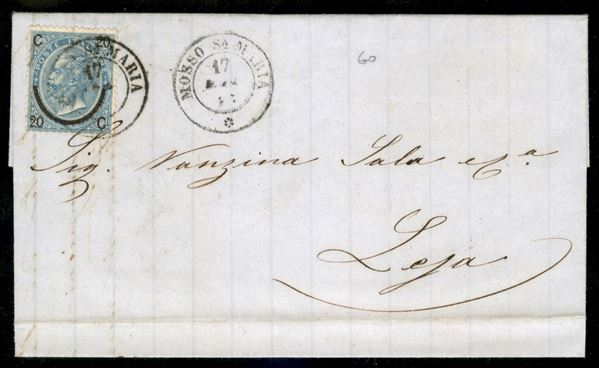 C 20
POSTE
20 C
S. MARIA
17
MOSSO Sa MARIA
17
60
Sig. Vanzina Sala e Ca
Lesa